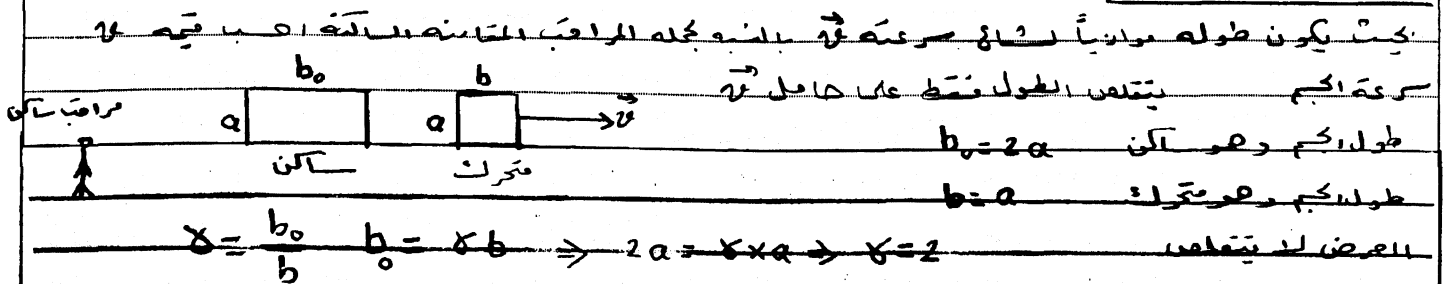 بحيث يكون طوله موازياً لشعاع سرعته v بالنسبة لجملة المراقب العطالية الساكنة احسب قيمة v
سرعة الجسم يتقلص الطول فقط على حامل v
b₀ b
مراقب ساكن a a v
طول الجسم وهو ساكن b₀ = 2a
ساكن متحرك
طول الجسم وهو متحرك b = a
العرض لا يتقلص γ = b₀/b b₀ = γb ⇒ 2a = γ×a ⇒ γ = 2